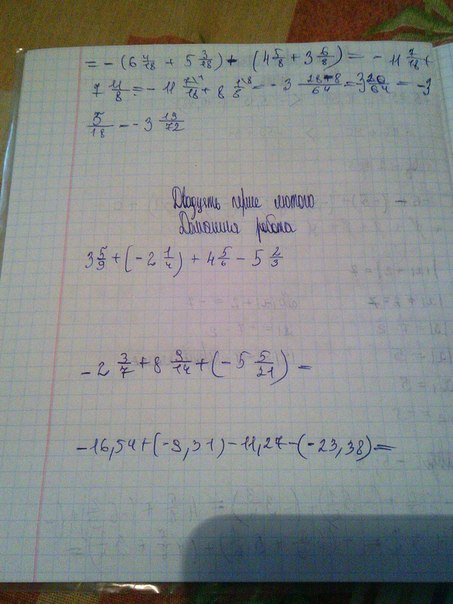 = - (6 4/18 + 5 3/18) + (4 5/8 + 3 6/8) = - 11 7/18 +
7 11/8 = - 11 7/18 + 8 3/8 = - 3 28-8/64 = 3 20/64 = - 3
5/18 = - 3 19/72
Двадцять перше лютого
Домашня робота
3 5/9 + (-2 1/4) + 4 5/6 - 5 2/3
- 2 3/7 + 8 9/14 + (- 5 5/21) =
-16,54 + (-9,31) - 11,27 - (-23,38) =